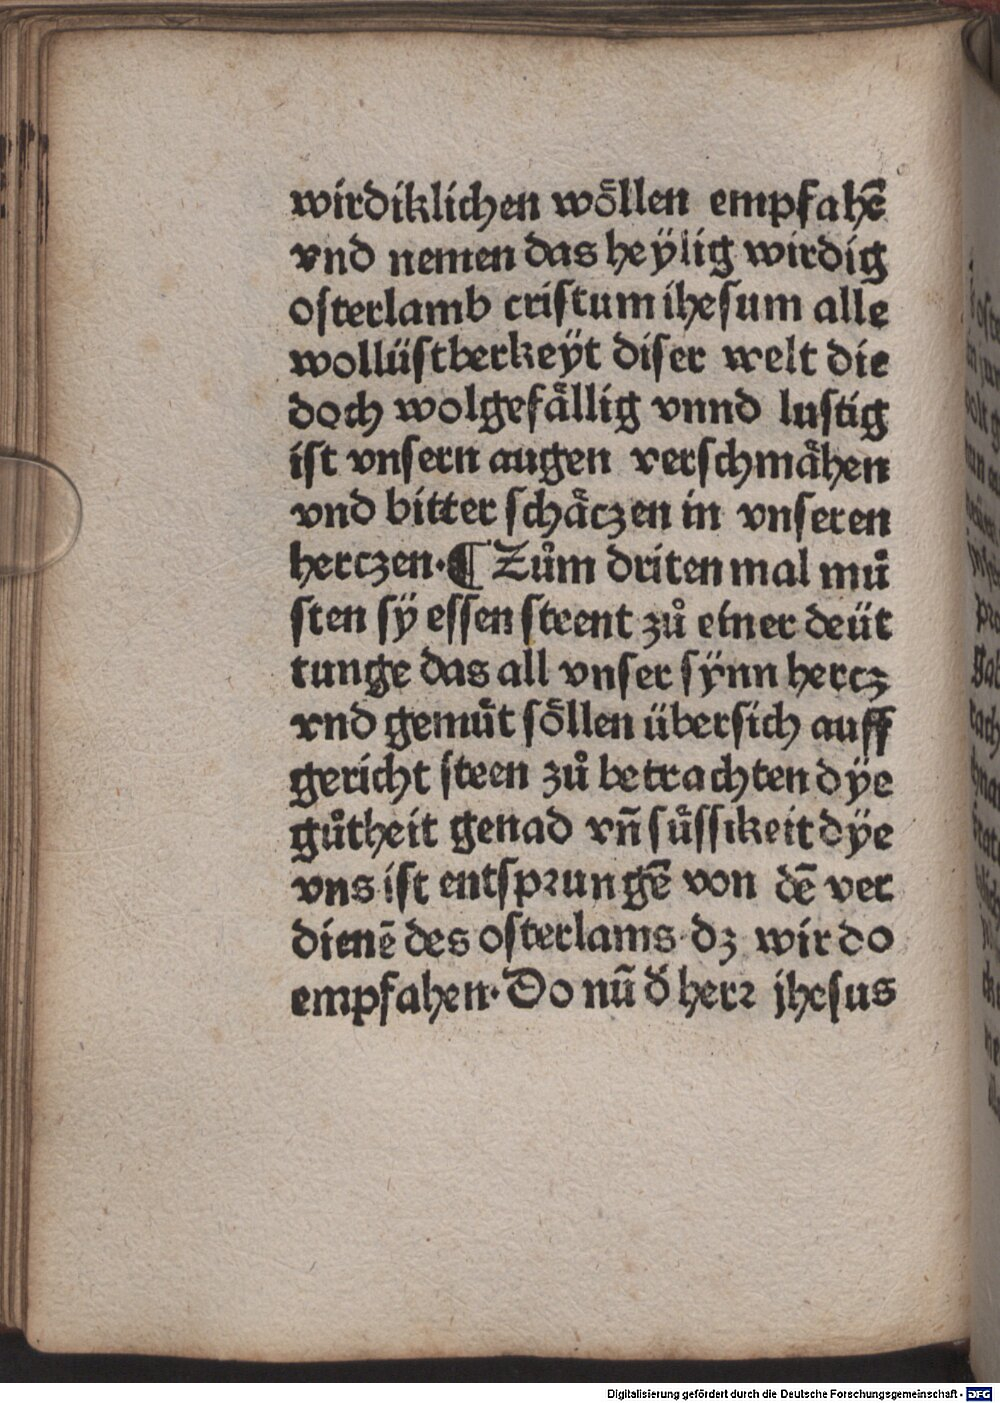 wirdiklichen wöllen empfahē
vnd nemen das heÿlig wirdig
osterlamb cristum ihesum alle
wollüstberkeÿt diser welt die
doch wolgefällig vnnd lustig
ist vnsern augen verschmähen
vnd bitter schäczen in vnseren
herczen. ¶ Zům driten mal mů
sten sÿ essen steent zů einer deüt
tunge das all vnser sÿnn hercz
vnd gemüt söllen übersich auff
gericht steen zů betrachten dÿe
gůtheit genad vñ süssikeit dÿe
vns ist entsprungē von dē ver
dienē des osterlams dz wir do
empfahen. Do nū d̕ herr jhesus
Digitalisierung gefördert durch die Deutsche Forschungsgemeinschaft - DFG